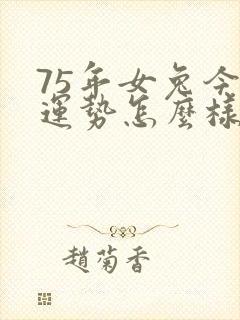 75年女兔今
運勢怎麼樣
趙菊香